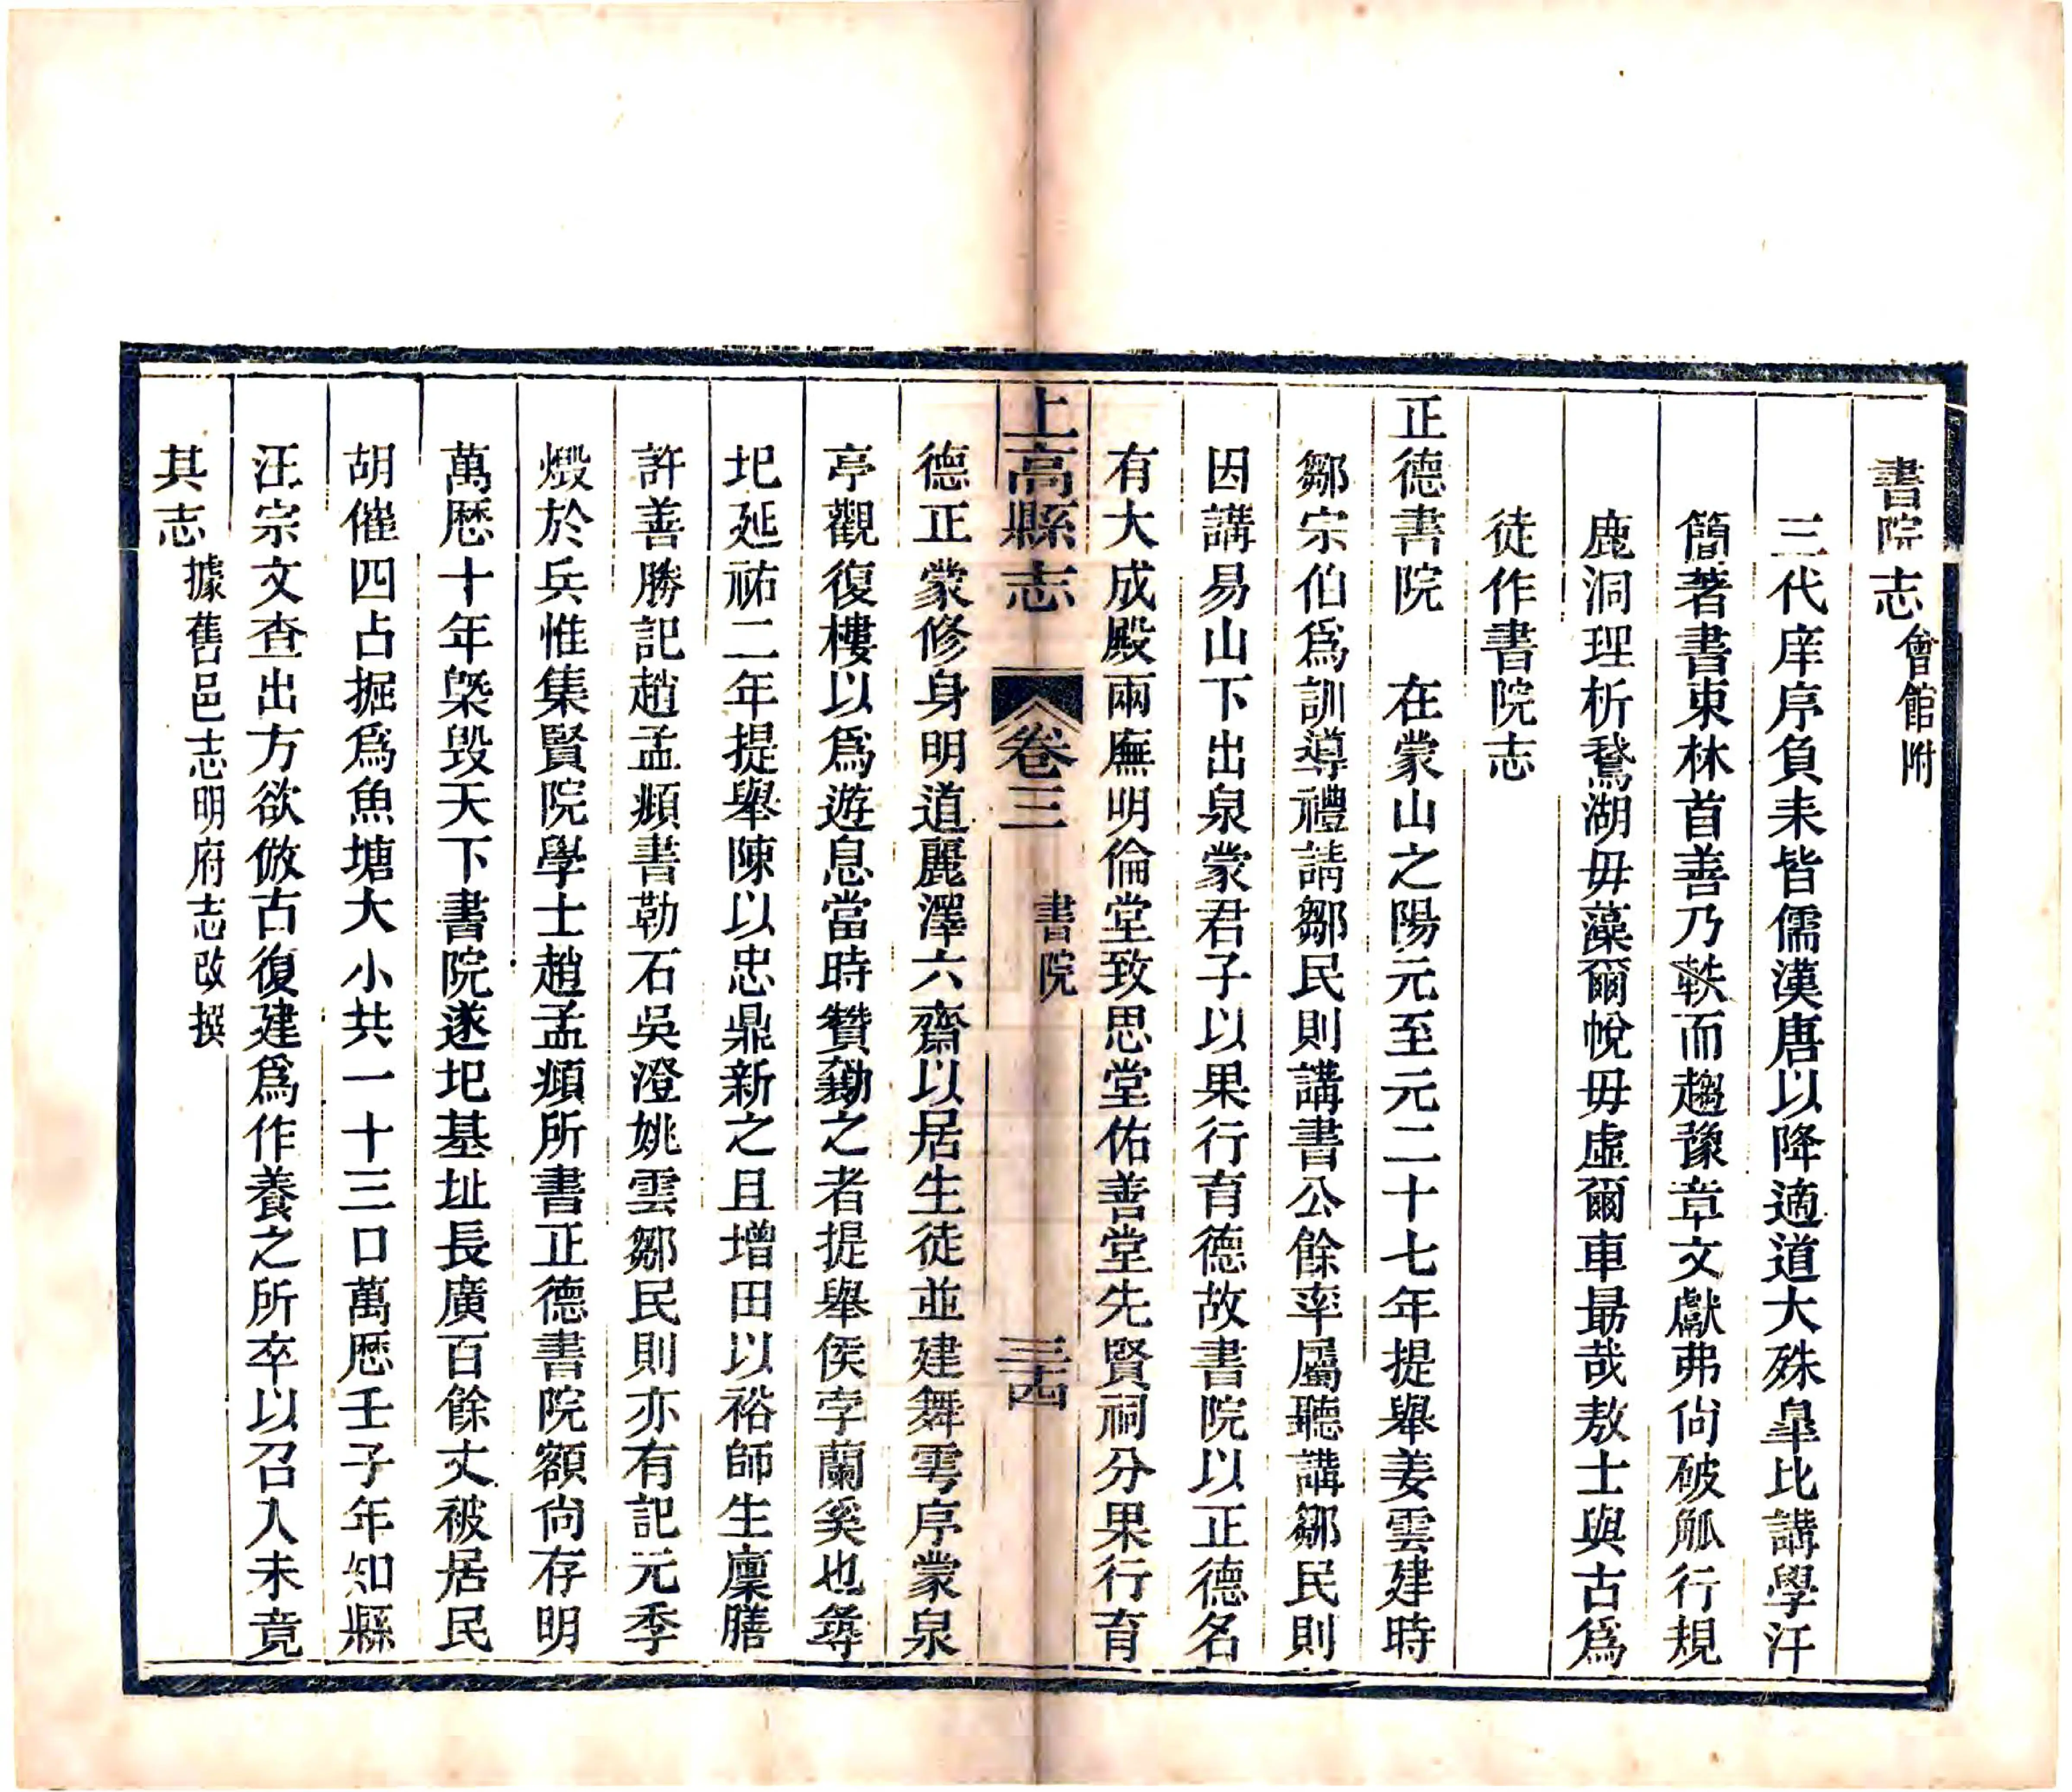 書院志會館附
三代庠序負耒皆儒漢唐以降適道大殊皐比講學汗
簡著書東林首善乃軼而趨豫章文獻弗尙破觚行規
鹿洞理析鵞湖毋藻爾帨毋虛爾車勗哉敖士與古爲
徒作書院志
正德書院　在蒙山之陽元至元二十七年提舉姜雲建時
鄒宗伯爲訓導禮請鄒民則講書公餘率屬聽講鄒民則
因講易山下出泉蒙君子以果行育德故書院以正德名
有大成殿兩廡明倫堂致思堂佑善堂先賢祠分果行育
上高縣志　卷三　書院　三十四
德正蒙修身明道麗澤六齋以居生徒並建舞雩序蒙泉
亭觀復樓以爲遊息當時贊勷之者提舉侯孛蘭奚也尋
圮延祐二年提舉陳以忠鼎新之且增田以裕師生廩膳
許善勝記趙孟頫書勒石吳澄姚雲鄒民則亦有記元季
燬於兵惟集賢院學士趙孟頫所書正德書院額尙存明
萬厯十年槩毀天下書院遂圮基址長廣百餘丈被居民
胡催四占掘爲魚塘大小共一十三口萬厯壬子年知縣
汪宗文查出方欲倣古復建爲作養之所卒以召入未竟
其志據舊邑志明府志改撰